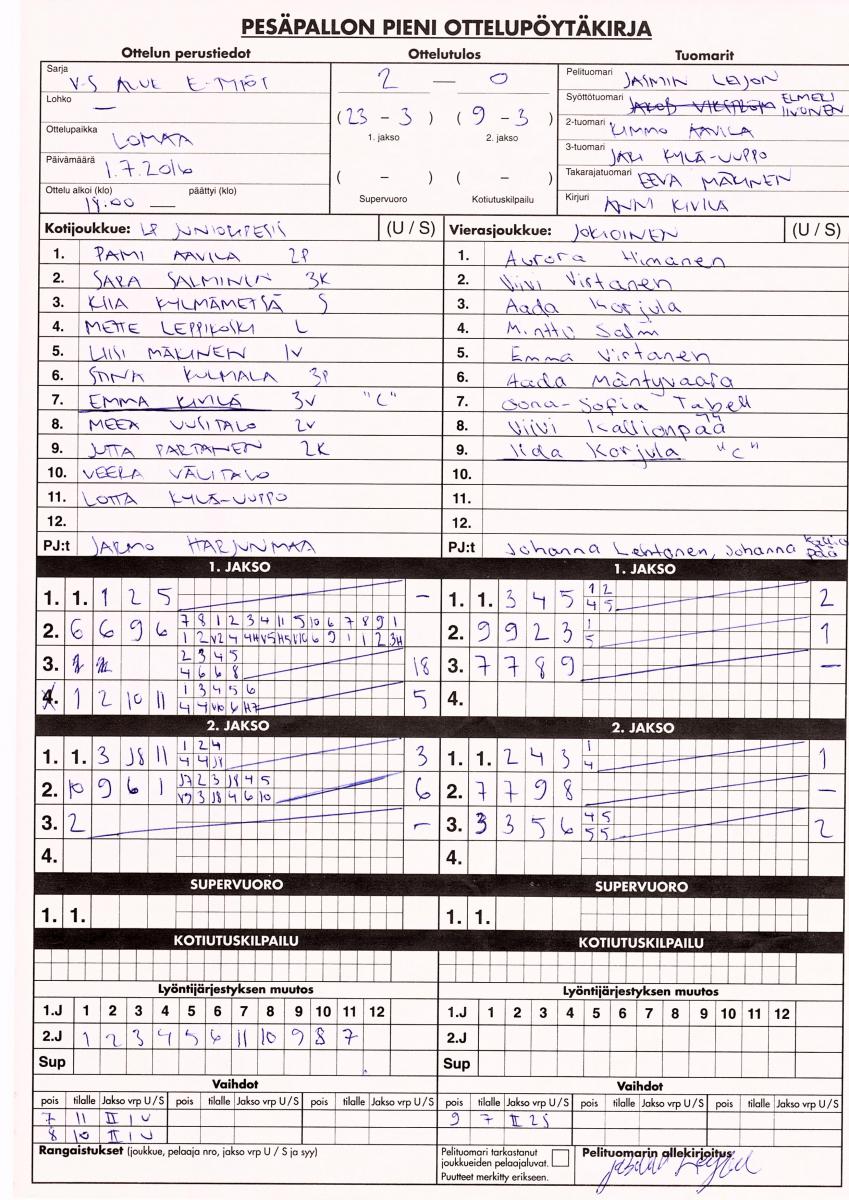 PESÄPALLON PIENI OTTELUPÖYTÄKIRJA
Ottelun perustiedot Ottelutulos Tuomarit
Sarja V-S ALUE E-TYTÖT
Lohko —
Ottelupaikka LOIMAA
Päivämäärä 1.7.2016
Ottelu alkoi (klo) päättyi (klo)
—
2 — 0
(23 - 3) (9 - 3)
1. jakso 2. jakso
( - ) ( - )
Supervuoro Kotiutuskilpailu
Pelituomari JASMIN LEIJON
Syöttötuomari ELMERI IIVONEN
2-tuomari KIMMO AAVILA
3-tuomari JARI KYLÄ-UUPPO
Takarajatuomari EEVA MÄKINEN
Kirjuri ANNI KIVILÄ
Kotijoukkue: LP JUNIORIPESIS (U / S)
1. PAMI AAVILA 2P
2. SARA SALMINEN 3K
3. KIIA KYLMÄMETSÄ S
4. METTE LEPPIKOSKI L
5. LIISI MÄKINEN 1V
6. STINA KULMALA 3P
7. EMMA KIVILÄ 3V "C"
8. MEEA UUSITALO 2V
9. JUTTA PARTANEN 2K
10. VEERA VÄLITALO
11. LOTTA KYLÄ-UUPPO
12.
PJ:t JARMO HARJUNMAA
Vierasjoukkue: JOKIOINEN (U / S)
1. Aurora Himanen
2. Viivi Virtanen
3. Aada Korjula
4. Minttu Salmi
5. Emma Virtanen
6. Aada Mäntyvaara
7. Oona-Sofia Tabell
8. Viivi Kallionpää
9. Iida Korjula "C"
10.
11.
12.
PJ:t Johanna Lehtonen, Johanna Kallionpää
1. JAKSO 1. JAKSO
1. 1. 1 2 5 —
2. 6 6 9 6 7 8 1 2 3 4 11 5 10 6 7 8 9 1
3. 2 3 4 5 18
4 6 6 8
4. 1 2 10 11 1 3 4 5 6 5
1. 1. 3 4 5 1 2 2
4 5
2. 9 9 2 3 1 1
5
3. 7 7 8 9 —
4.
2. JAKSO 2. JAKSO
1. 1. 3 J8 11 1 2 4 3
4 4 J8
2. 10 9 6 1 J7 2 3 J8 4 5 6
V9 3 J8 4 6 10
3. 2 —
4.
1. 1. 2 4 3 1 1
4
2. 7 7 9 8 —
3. 3 3 5 6 4 5 2
5 5
4.
SUPERVUORO SUPERVUORO
1. 1. 1. 1.
KOTIUTUSKILPAILU KOTIUTUSKILPAILU
Lyöntijärjestyksen muutos Lyöntijärjestyksen muutos
1.J 1 2 3 4 5 6 7 8 9 10 11 12 1.J 1 2 3 4 5 6 7 8 9 10 11 12
2.J 1 2 3 4 5 6 11 10 9 8 7 2.J
Sup Sup
Vaihdot Vaihdot
pois tilalle Jakso vrp U/S pois tilalle Jakso vrp U/S pois tilalle Jakso vrp U/S pois tilalle Jakso vrp U/S pois tilalle Jakso vrp U/S pois tilalle Jakso vrp U/S
7 11 II 1 U 9 7 II 2 S
8 10 II 1 U
Rangaistukset (joukkue, pelaaja nro, jakso vrp U / S ja syy)
Pelituomari tarkastanut joukkueiden pelaajaluvat.
Puutteet merkitty erikseen.
Pelituomarin allekirjoitus